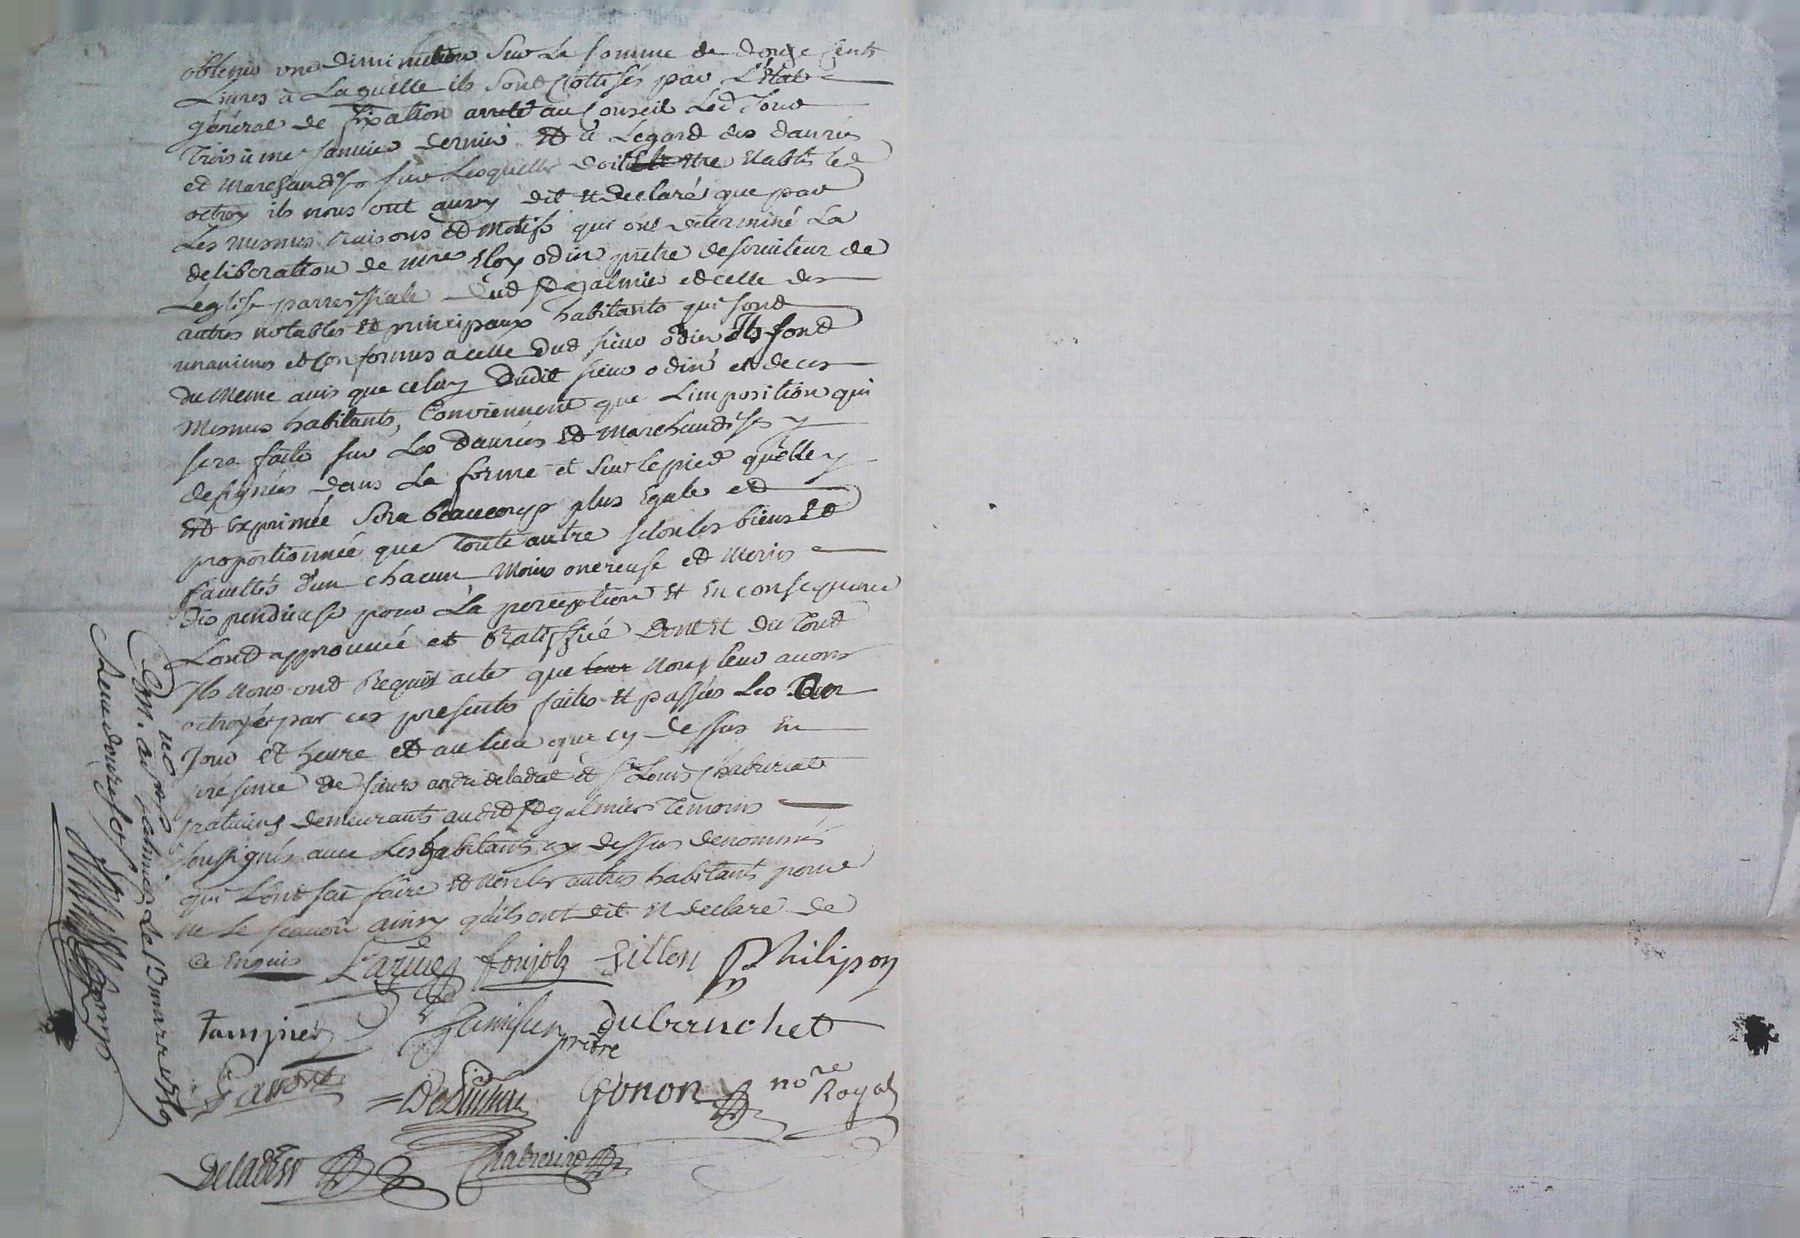 obtenir une diminution sur la somme de douze cents
Livres à Laquelle ils sont Cottisés par L'État
général de fixation arreté au Conseil Led Jour
Troisieme Janvier dernier Et a Legard des danrées
et Marchandises sur Lesquelles doit Estre Etablis led
octroy ils nous ont aussy dit et declaré que par
Les mesmes raisons Et Motifs qui ont determiné La
deliberation de mre Eloy odin prêtre desserviteur de
L'eglise parroissiale dud St galmier et celle des
autres notables et principaux habitants qui sont
unanimes et Conformes a celle dud sieur odin Ils sont
du Meme avis que celuy dudit sieur odin et de ces
Mesmes habitants, Conviennent que L'imposition qui
sera faite sur Les danrées Et Marchandises y
designées dans La forme et sur le pied quelle y
Est Exprimée sera beaucoup plus Egale et
proportionnée que Toute autre selon les biens Et
facultés d'un chacun Moins onereuse et Moins
dispendieuse pour La perception Et En consequence
L'ont approuvée et Ratiffié Dont Et du Tout
Ils nous ont Requis acte que leur Nous leur avons
octroyé par ces presentes faites et passées Les
Jour et heure et au lieu que cy dessus En
présence de sieurs andré deladret et Sr Louis Chabreriat
praticiens demeurants audit St galmier Temoins
soussignés avec Les habitants cy dessus denommés
qui L'ont sçu faire et non les autres habitants pour
ne le sçavoir ainsy qu'ils ont dit et declaré de
ce Enquis
fonjols gillon Philipon
dubruchet
prêtre
Gonon nore Royal
Con. a St galmier Le 13 mars
Reçu douze sols